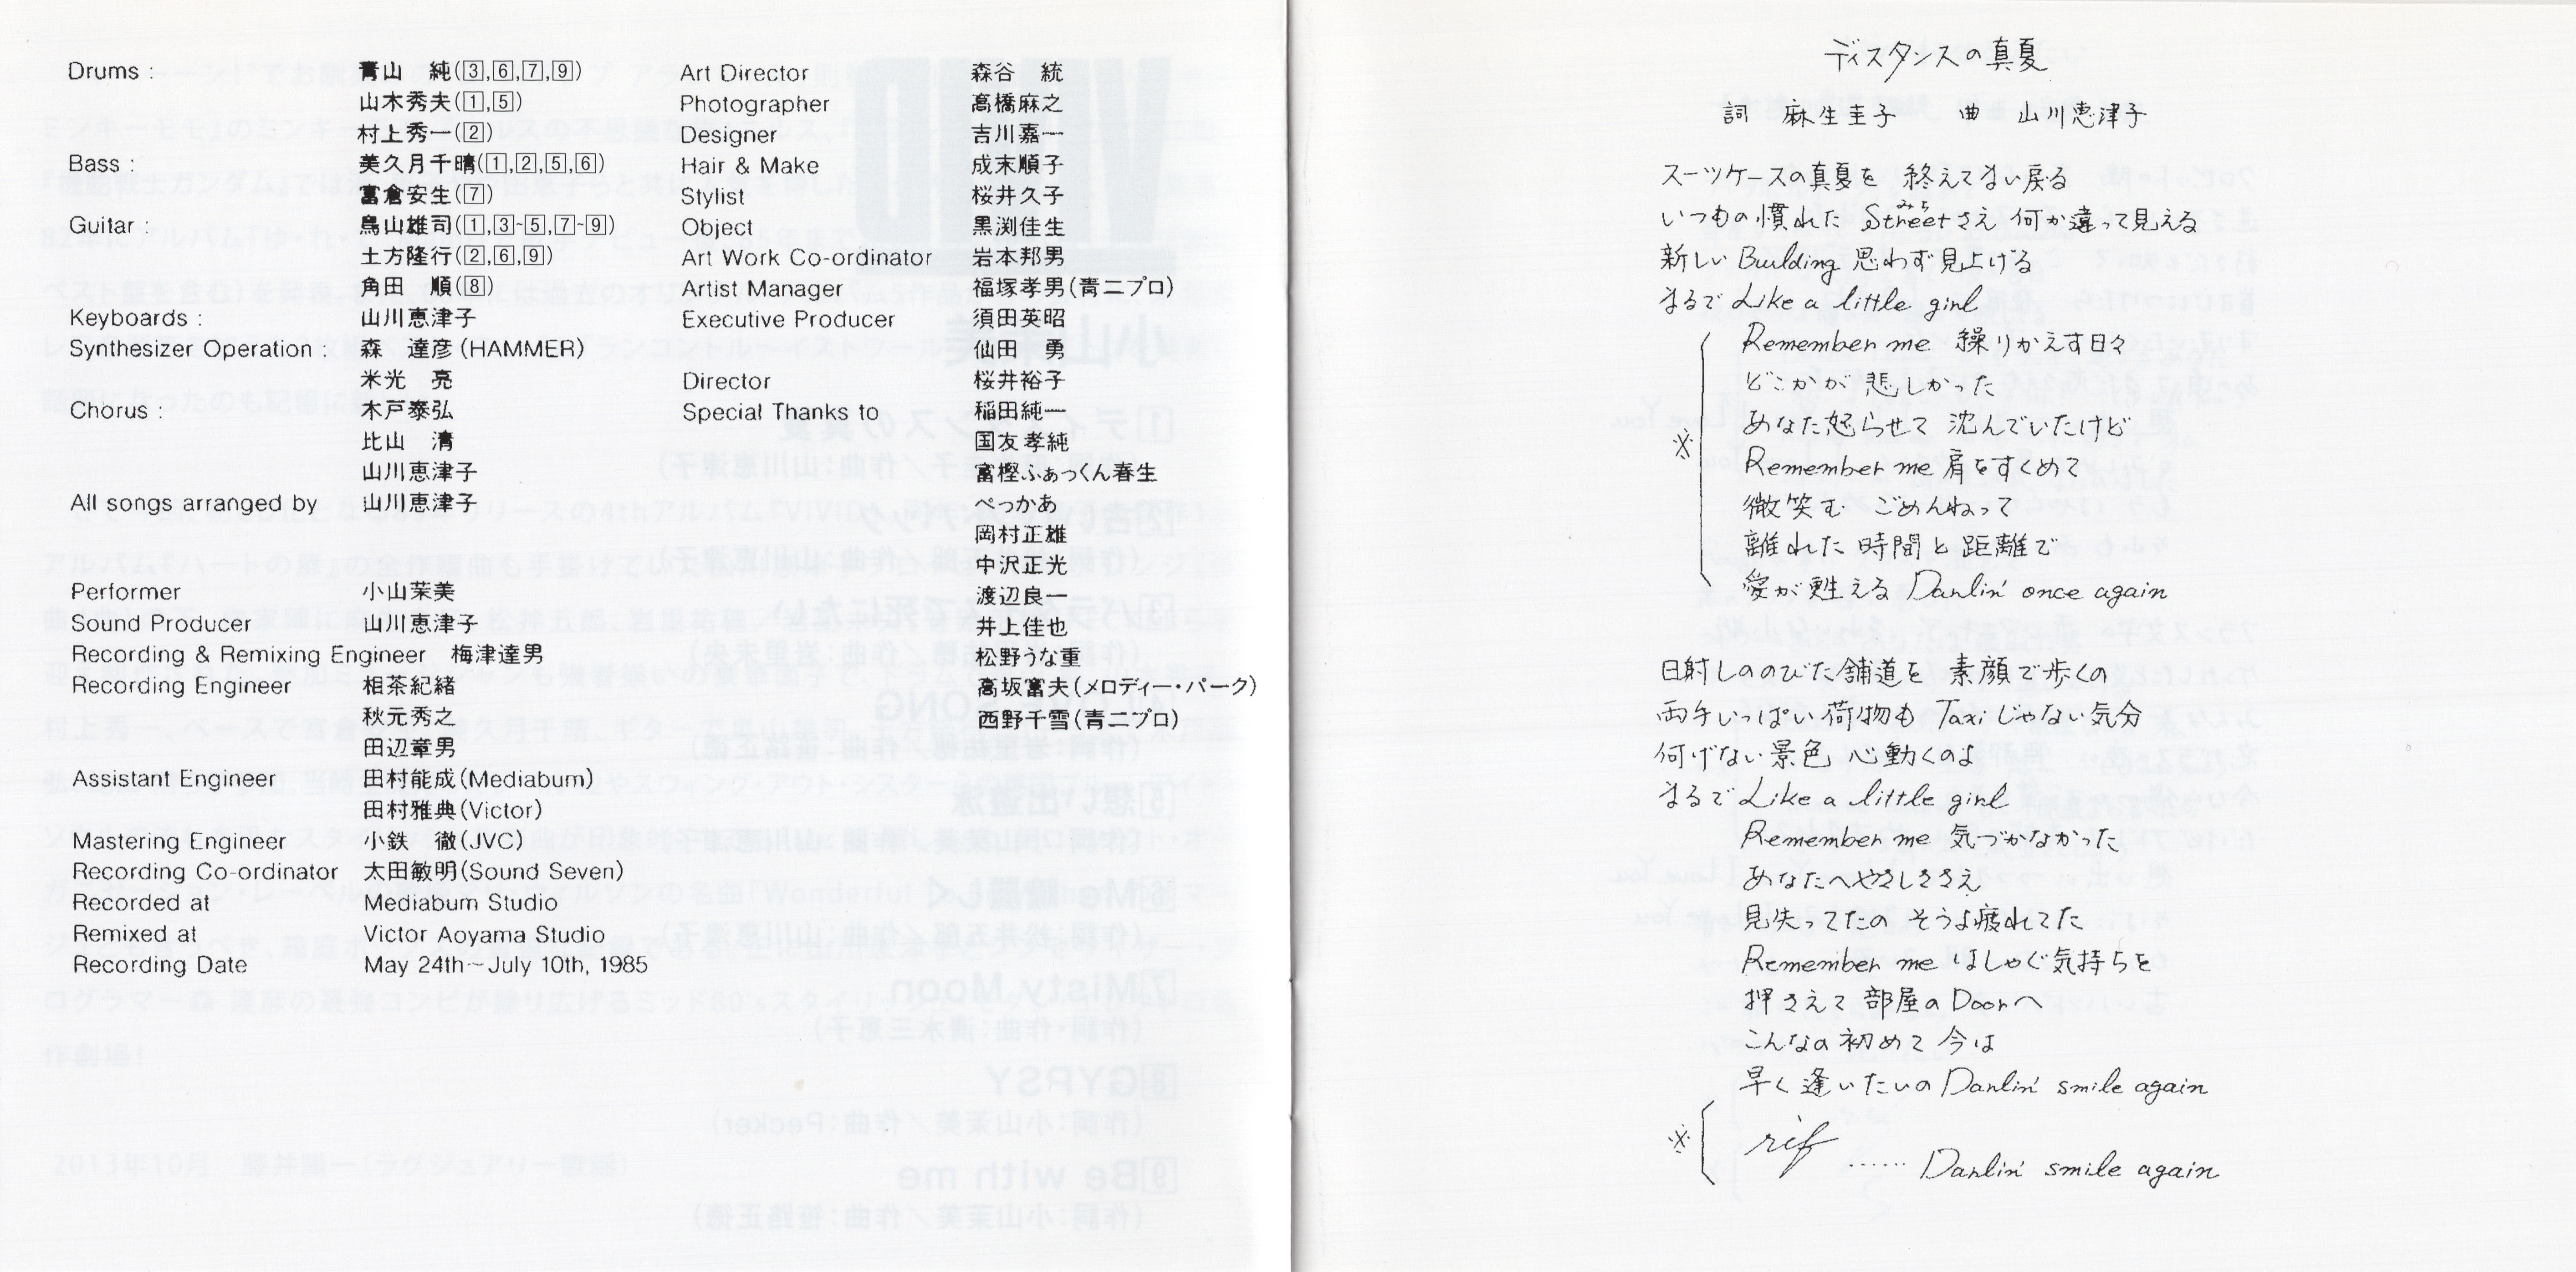 Drums : 青山　純(③,⑥,⑦,⑨)
山木秀夫(①,⑤)
村上秀一(②)
Bass : 美久月千晴(①,②,⑤,⑥)
富倉安生(⑦)
Guitar : 鳥山雄司(①,③~⑤,⑦~⑨)
土方隆行(②,⑥,⑨)
角田　順(⑧)
Keyboards : 山川恵津子
Synthesizer Operation : 森　達彦(HAMMER)
米光　亮
Chorus : 木戸泰弘
比山　清
山川恵津子
All songs arranged by 山川恵津子
Performer 小山茉美
Sound Producer 山川恵津子
Recording & Remixing Engineer 梅津達男
Recording Engineer 相茶紀緒
秋元秀之
田辺章男
Assistant Engineer 田村能成(Mediabum)
田村雅典(Victor)
Mastering Engineer 小鉄　徹(JVC)
Recording Co-ordinator 太田敏明(Sound Seven)
Recorded at Mediabum Studio
Remixed at Victor Aoyama Studio
Recording Date May 24th~July 10th, 1985
Art Director 森谷　統
Photographer 高橋麻之
Designer 吉川嘉一
Hair & Make 成末順子
Stylist 桜井久子
Object 黒渕佳生
Art Work Co-ordinator 岩本邦男
Artist Manager 福塚孝男(青二プロ)
Executive Producer 須田英昭
仙田　勇
Director 桜井裕子
Special Thanks to 稲田純一
国友孝純
富樫ふぁっくん春生
ぺっかあ
岡村正雄
中沢正光
渡辺良一
井上佳也
松野うな重
高坂富夫(メロディー・パーク)
西野千雪(青二プロ)
ディスタンスの真夏
詞　麻生圭子　曲　山川恵津子
スーツケースの真夏を 終えてない戻る
いつもの慣れた Street(みち)さえ 何か違って見える
新しい Building 思わず見上げる
まるで Like a little girl
Remember me 繰りかえす日々
どこかが 悲しかった
あなた怒らせて 沈んでいたけど
※ Remember me 肩をすくめて
微笑む ごめんねって
離れた 時間と 距離で
愛が 甦える Darlin' once again
日射しののびた舗道を 素顔で歩くの
両手いっぱい荷物も Taxiじゃない気分
何げない景色 心動くのよ
まるで Like a little girl
Remember me 気づかなかった
あなたへやさしささえ
見失ってたの そうよ疲れてた
Remember me はしゃぐ気持ちを
押さえて 部屋のDoorへ
こんなの初めて 今は
早く逢いたいの Darlin' smile again
※ rif ...... Darlin' smile again